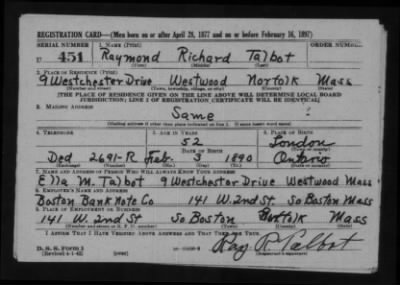 REGISTRATION CARD—(Men born on or after April 28, 1877 and on or before February 16, 1897)
SERIAL NUMBER 1. NAME (Print) ORDER NUMBER
U 451 Raymond Richard Talbot
(First) (Middle) (Last)
2. PLACE OF RESIDENCE (Print)
9 Westchester Drive Westwood Norfolk Mass
(Number and street) (Town, township, village, or city) (County) (State)
[THE PLACE OF RESIDENCE GIVEN ON THE LINE ABOVE WILL DETERMINE LOCAL BOARD
JURISDICTION; LINE 2 OF REGISTRATION CERTIFICATE WILL BE IDENTICAL]
3. MAILING ADDRESS
Same
[Mailing address if other than place indicated on line 2. If same insert word same]
4. TELEPHONE 5. AGE IN YEARS 6. PLACE OF BIRTH
52 London
DATE OF BIRTH (Town or county)
Ded 2691-R Feb. 3 1890 Ontario
(Exchange) (Number) (Mo.) (Day) (Yr.) (State or country)
7. NAME AND ADDRESS OF PERSON WHO WILL ALWAYS KNOW YOUR ADDRESS
Ella M. Talbot 9 Westchester Drive Westwood Mass
8. EMPLOYER'S NAME AND ADDRESS
Boston Bank Note Co 141 W. 2nd St. So Boston Mass
9. PLACE OF EMPLOYMENT OR BUSINESS
141 W. 2nd St So Boston Mass
(Number and street or R. F. D. number) (Town) (County) (State)
I AFFIRM THAT I HAVE VERIFIED ABOVE ANSWERS AND THAT THEY ARE TRUE.
D. S. S. Form 1
(Revised 4-1-42) (over)
Ray R. Talbot